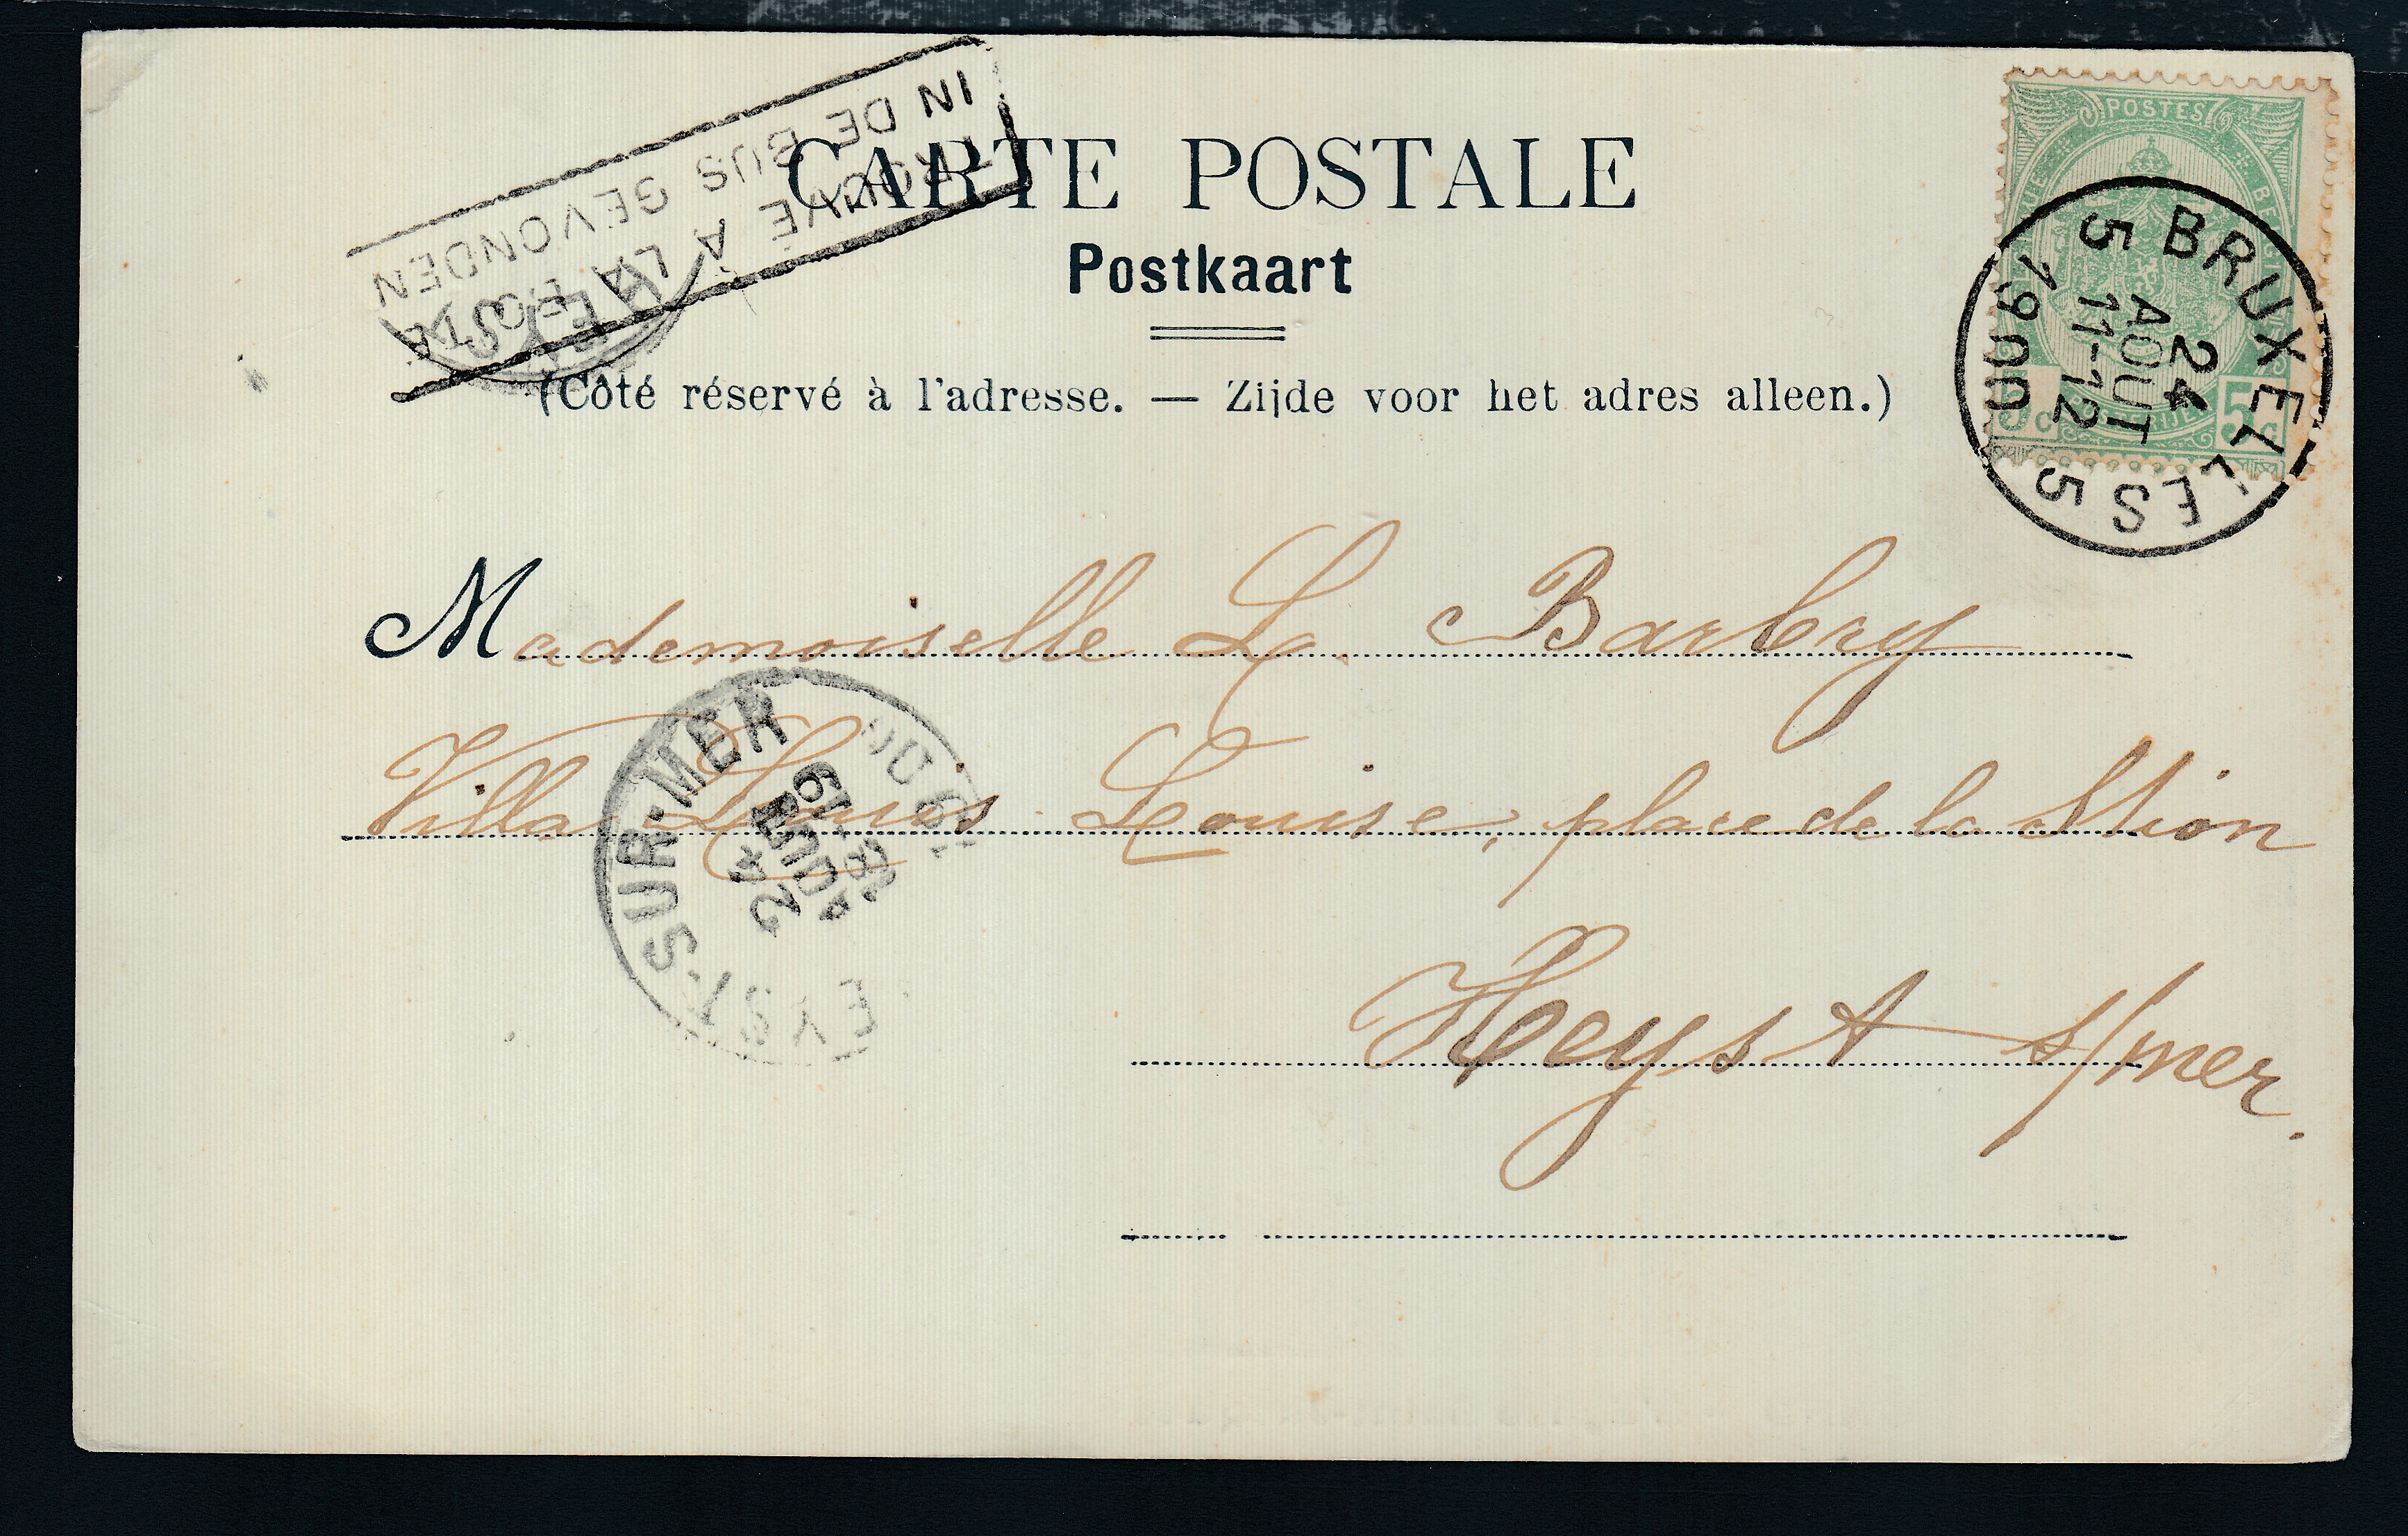 IN DE BUS GEVONDEN
TROUVÉ À LA
CARTE POSTALE
Postkaart
(Côté réservé à l'adresse. — Zijde voor het adres alleen.)
POSTES
5 c 5 c
BRUXELLES 5
24
AOUT
11-12
5 1900
Mademoiselle L. Barbry
Villa Louis Louise, place de la Stion
Heyst s/mer.
EYST-SUR-MER
24
AOUT
19